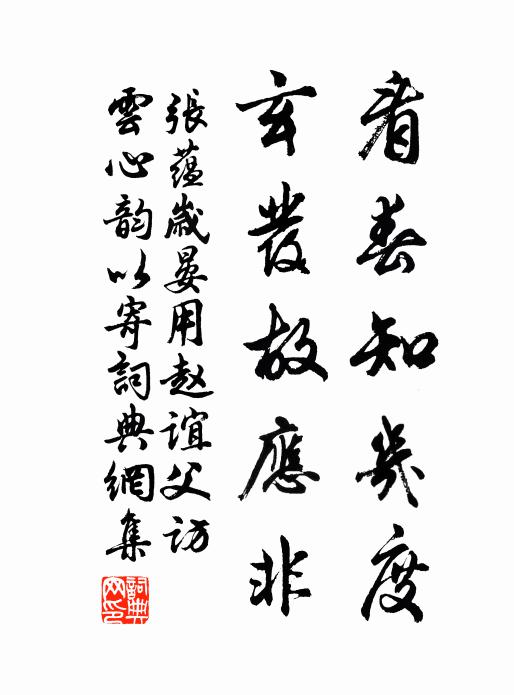 看春知幾度
玄髮故應非
張蘊歲晏用赵誼父訪
雲心韵以寄詞典網集
詞典網印